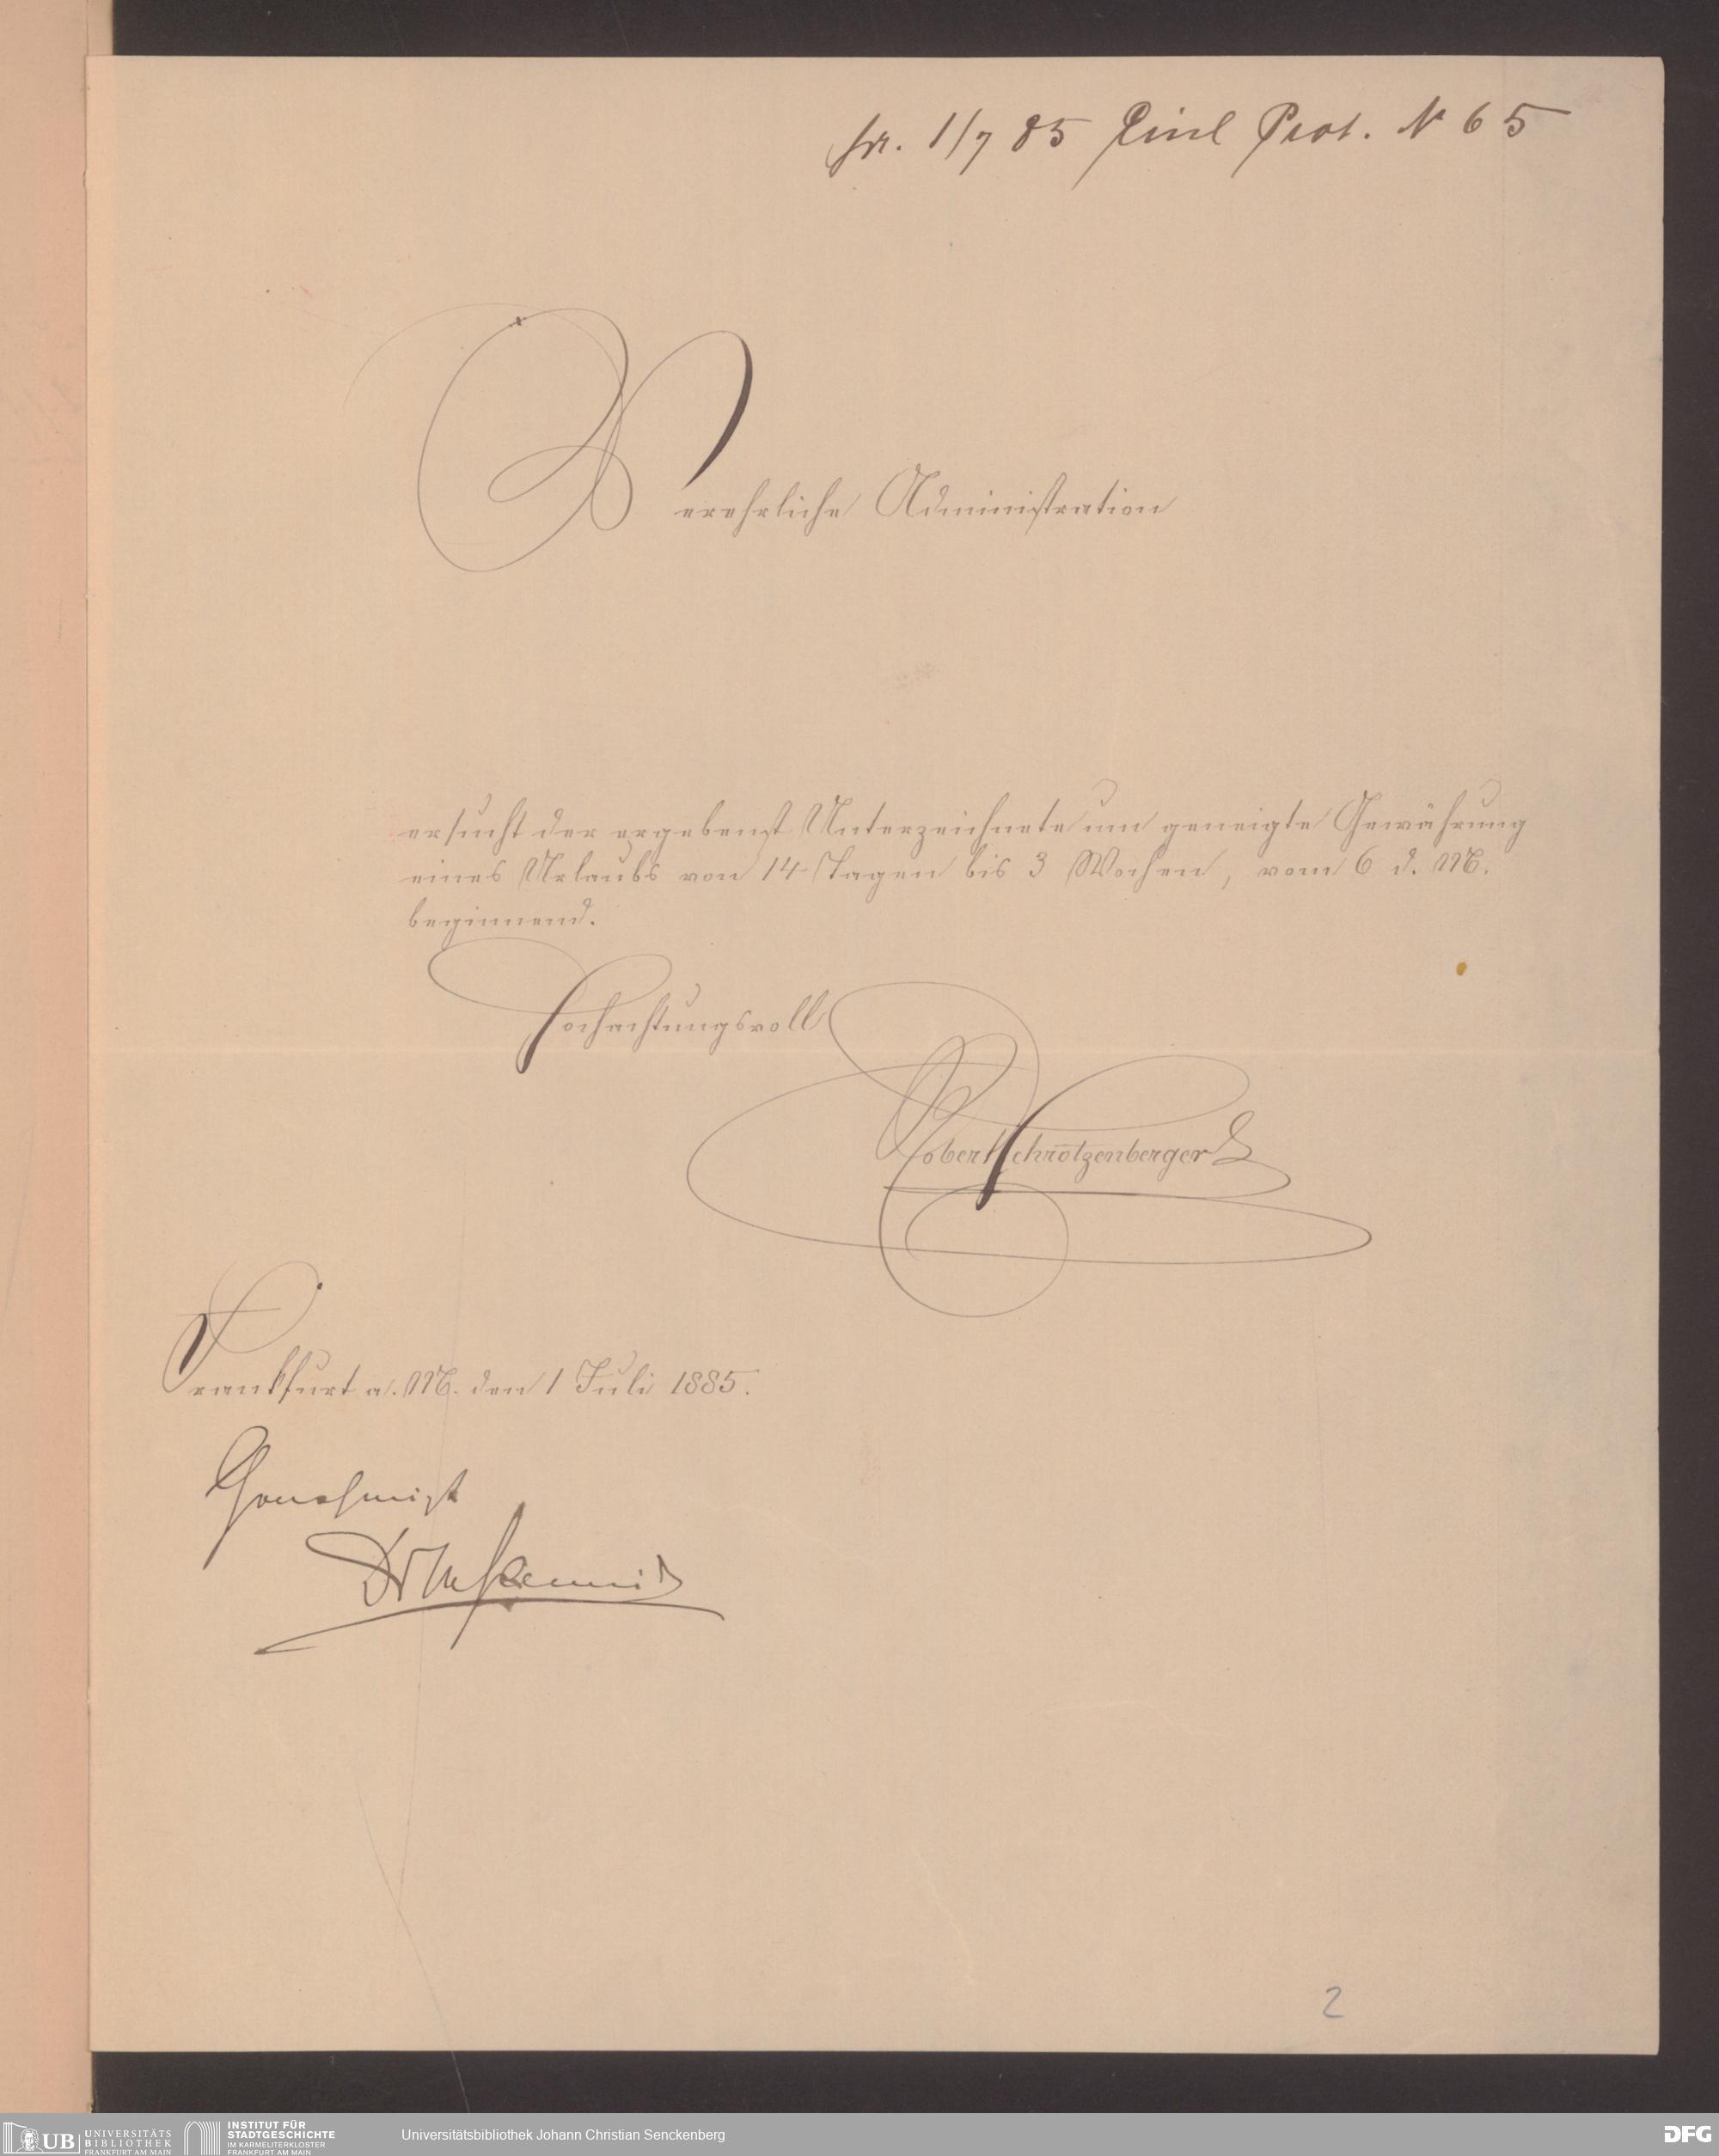 pr. 1/7 85 Einl Prot. N 65
Verehrliche Administration
ersucht der ergebenst Unterzeichnete um geneigte Gewährung
eines Urlaubs von 14 Tagen bis 3 Wochen, vom 6 d. M.
beginnend.
Hochachtungsvoll
Robert Schrotzenberger
Frankfurt a. M. den 1 Juli 1885.
Genehmigt
Dr
2
UB UNIVERSITÄTS
BIBLIOTHEK
FRANKFURT AM MAIN
INSTITUT FÜR
STADTGESCHICHTE
IM KARMELITERKLOSTER
FRANKFURT AM MAIN
Universitätsbibliothek Johann Christian Senckenberg
DFG